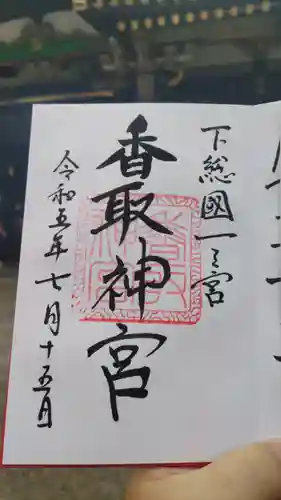 下総國一之宮
香取神宮
令和五年七月十五日